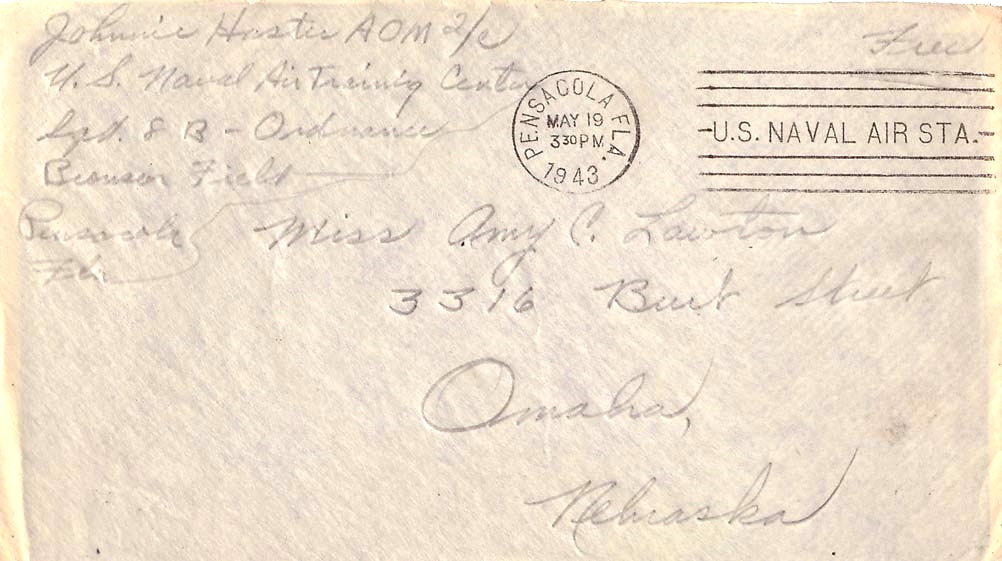 Johnnie Hoster AOM 2/c
U.S. Naval Air Training Center
Sqd. 8 B - Ordnance
Bronson Field
Pensacola
Fla
Free
PENSACOLA FLA.
MAY 19
3 30 PM
1943
U.S. NAVAL AIR STA.
Miss Amy C. Lawton
3316 Burt Street
Omaha,
Nebraska